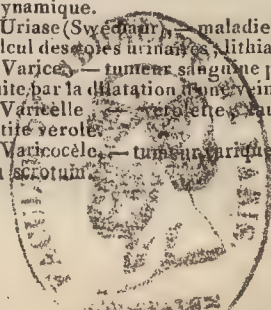 ynamique.
Uriase (Swediaur), — maladie
lcul des voies urinaires, lithia
Varice, — tumeur sanguine p
uite par la dilatation d'une vein
Varicelle — vérolette, fau
tite vérole.
Varicocèle, — tumeur varique
scrotum.